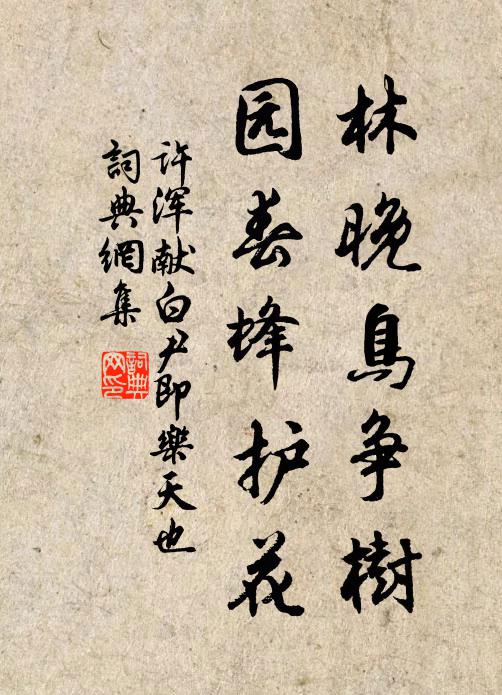 林晚鳥争樹
园春蜂护花
许浑献白尹即樂天也
詞典網集
詞典
网印